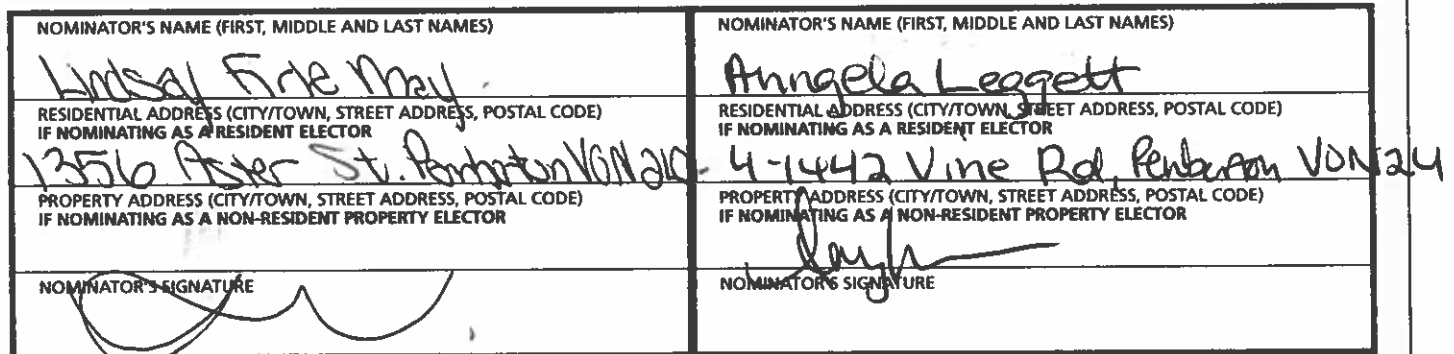 NOMINATOR'S NAME (FIRST, MIDDLE AND LAST NAMES)
Lindsay May
RESIDENTIAL ADDRESS (CITY/TOWN, STREET ADDRESS, POSTAL CODE)
IF NOMINATING AS A RESIDENT ELECTOR
1356 Aster St. Pemberton V0N
PROPERTY ADDRESS (CITY/TOWN, STREET ADDRESS, POSTAL CODE)
IF NOMINATING AS A NON-RESIDENT PROPERTY ELECTOR
NOMINATOR'S SIGNATURE
NOMINATOR'S NAME (FIRST, MIDDLE AND LAST NAMES)
Anngela Leggett
RESIDENTIAL ADDRESS (CITY/TOWN, STREET ADDRESS, POSTAL CODE)
IF NOMINATING AS A RESIDENT ELECTOR
4-1442 Vine Rd, Pemberton V0N
PROPERTY ADDRESS (CITY/TOWN, STREET ADDRESS, POSTAL CODE)
IF NOMINATING AS A NON-RESIDENT PROPERTY ELECTOR
NOMINATOR'S SIGNATURE